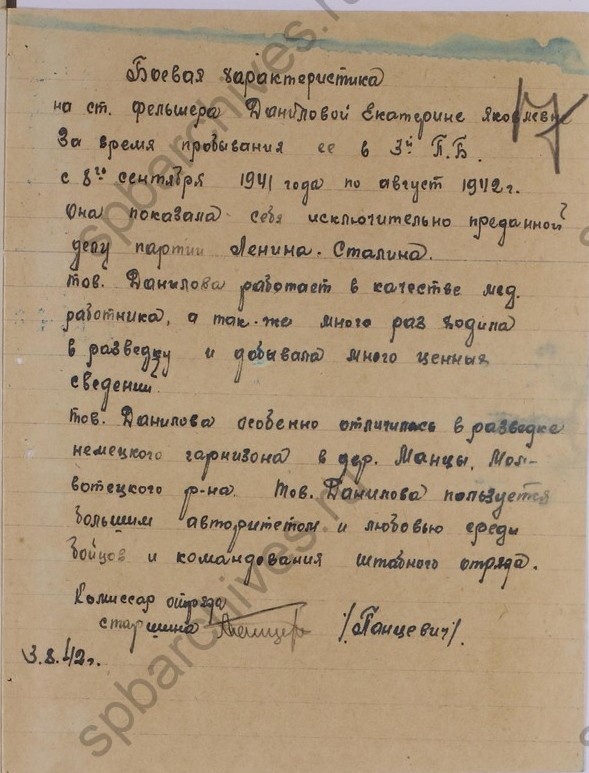 17
Боевая характеристика
на ст. фельшера Даниловой Екатерине Яковлевне
За время пробывания ее в 3й П.Б.
с 8го сентября 1941 года по август 1942 г.
Она показала себя исключительно преданной
делу партии Ленина-Сталина.
Тов. Данилова работает в качестве мед.
работника, а так-же много раз ходила
в разведку и добывала много ценных
сведений.
Тов. Данилова особенно отличилась в разведке
немецкого гарнизона в дер. Манцы, Мол-
вотецкого р-на. Тов. Данилова пользуется
большим авторитетом и любовью среди
бойцов и командования штабного отряда.
Комиссар отряда
старшина /Панцевич/.
3.8.42 г.
spbarchives.ru
spbarchives.ru